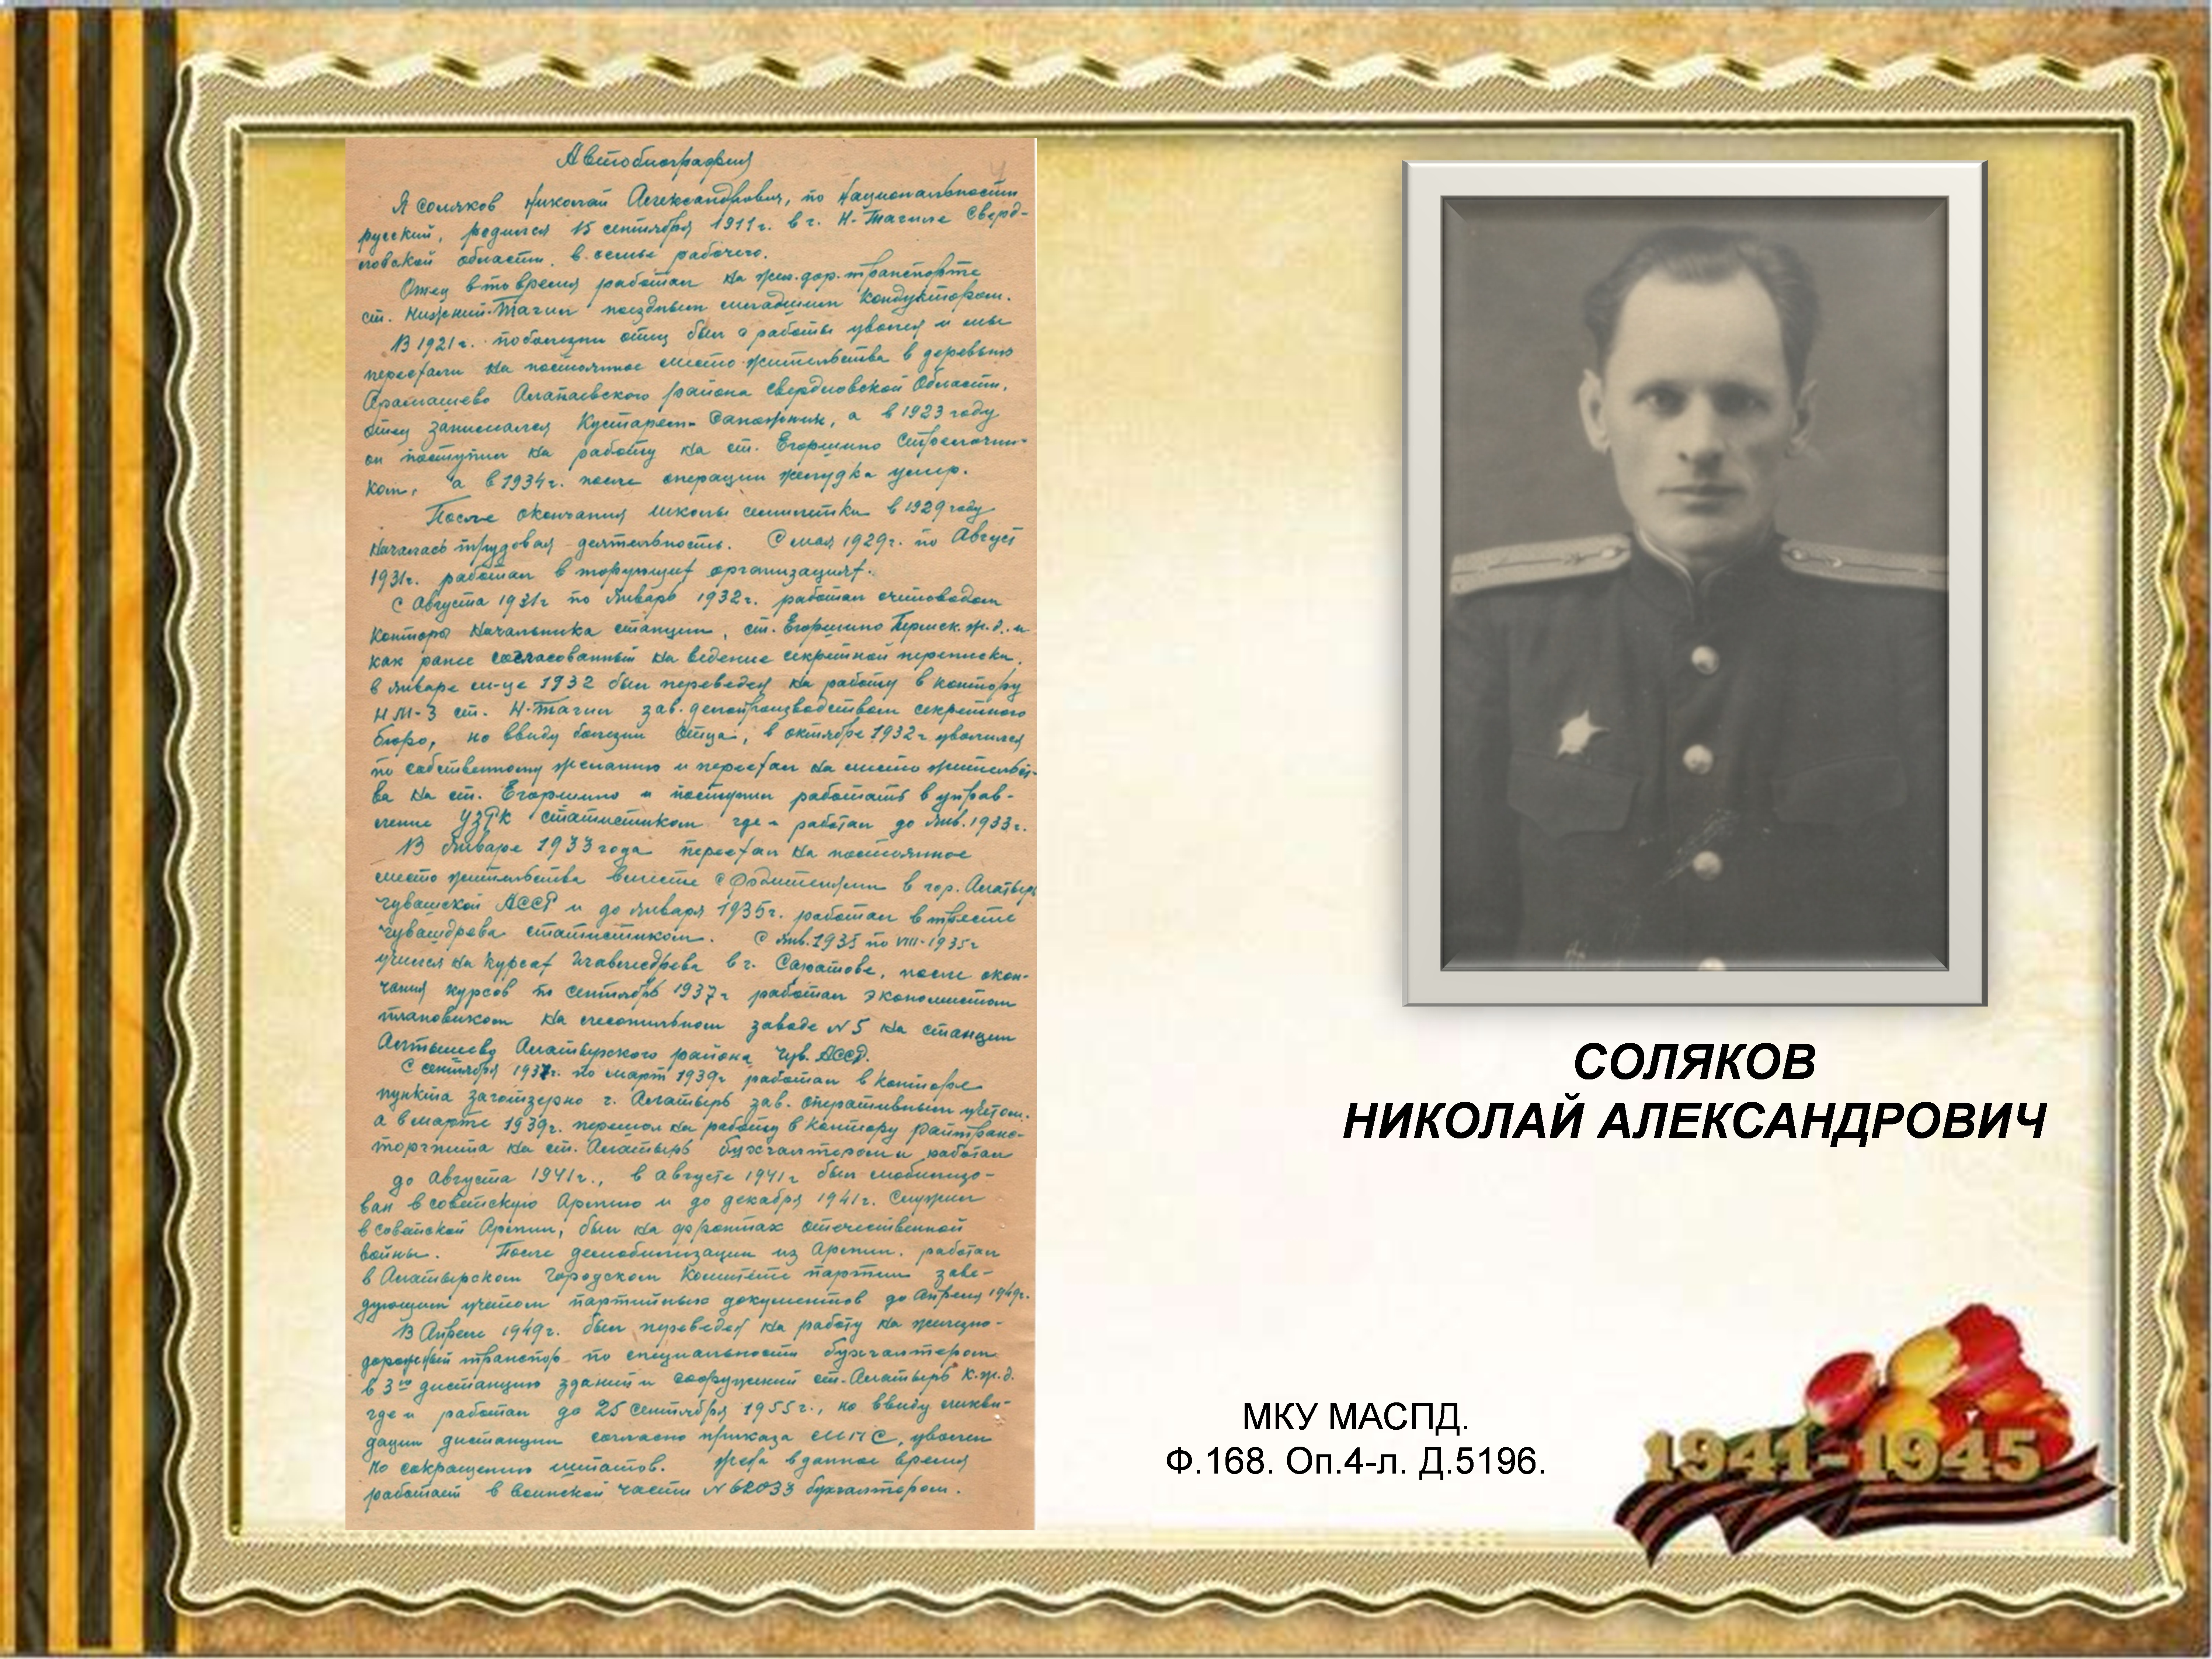 Автобиография
Я Соляков Николай Александрович, по Национальности
русский, родился 15 сентября 1911г. в г. Н-Тагиле Сверд-
ловской области, в семье рабочего.
Отец в то время работал на жел.дор.транспорте
ст. Нижний-Тагил поездным младшим кондуктором.
В 1921г. по болезни отец был с работы уволен и мы
переехали на постоянное место жительства в деревню
Арамашево Алапаевского района Свердловской Области,
отец записался Кустарем-Сапожник, а в 1923 году
он поступил на работу на ст. Егоршино Стрелочни-
ком, а в 1934г. после операции желудка умер.
После окончания школы семилетки в 1929 году
началась трудовая деятельность. С мая 1929г. по Август
1931г. работал в торгующих организациях.
С Августа 1931г по Январь 1932г. работал счетоводом
Конторы Начальника станции, ст. Егоршино Пермск.ж.д. и
как ранее согласованный на ведение секретной переписки,
в январе м-це 1932 был переведен на работу в контору
НМ-3 ст. Н-Тагил зав.делопроизводством секретного
бюро, но ввиду болезни Отца, в октябре 1932г уволился
по собственному желанию и переехал на место жительст-
ва на ст. Егоршино и поступил работать в управ-
ление УЗРК статистиком где и работал до Янв.1933г.
В Январе 1933 года переехал на постоянное
место жительства вместе с Родителями в гор. Алатырь
Чувашской АССР и до января 1935г. работал в тресте
Чувашдрева статистиком. С янв.1935 по VIII-1935г
учился на курсах Главмедрева в г. Саратове, после окон-
чания курсов по сентябрь 1937г работал экономистом
плановиком на лесопильном заводе №5 на станции
Алтышево Алатырского района Чув. АССР.
С сентября 1937г. по март 1939г работал в конторе
пункта заготзерно г. Алатырь зав. оперативным учетом.
а в марте 1939г. перешел на работу в контору райтранс-
торгпита на ст. Алатырь бухгалтером и работал
до Августа 1941г., в августе 1941г был мобилизо-
ван в советскую Армию и до декабря 1941г. Служил
в Советской Армии, был на фронтах отечественной
войны. После демобилизации из Армии, работал
в Алатырском Городском Комитете партии заве-
дующим учетом партийных документов до Апреля 1949г.
В Апреле 1949г. был переведен на работу на железно-
дорожный транспор по специальности бухгалтером
в 3ю дистанцию зданий и сооружений ст.Алатырь К.ж.д.
где и работал до 25 сентября 1955г., но ввиду ликви-
дации дистанции согласно приказа МПС, уволен
по сокращению штатов. в данное время
работает в воинской части №62033 бухгалтером.
СОЛЯКОВ
НИКОЛАЙ АЛЕКСАНДРОВИЧ
МКУ МАСПД.
Ф.168. Оп.4-л. Д.5196.
1941-1945